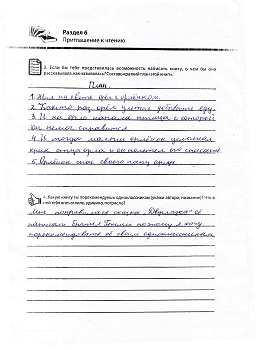 Раздел 6
Приглашение к чтению
3. Если бы тебе представилась возможность написать книгу, о чем бы она
рассказывала, как называлась? Составь краткий план этой книги.
План.
1. Жил на свете орёл с орлёнком.
2. Както раз орёл улетел добывать еду.
3. И на орла напала птица с которой
он не мог справится
4. И тогда малыш орлёнок услышал
крик отца и полетел его спасать
5. Орлёнок спас своего папу орла
4. Какую книгу ты порекомендуешь одноклассникам (укажи автора, название)? Что в
ней тебя впечатлило, удивило, потрясло?
Мне понравилась сказка её
написали Братья Гримм поэтому я хочу
порекомендовать её своим одноклассникам